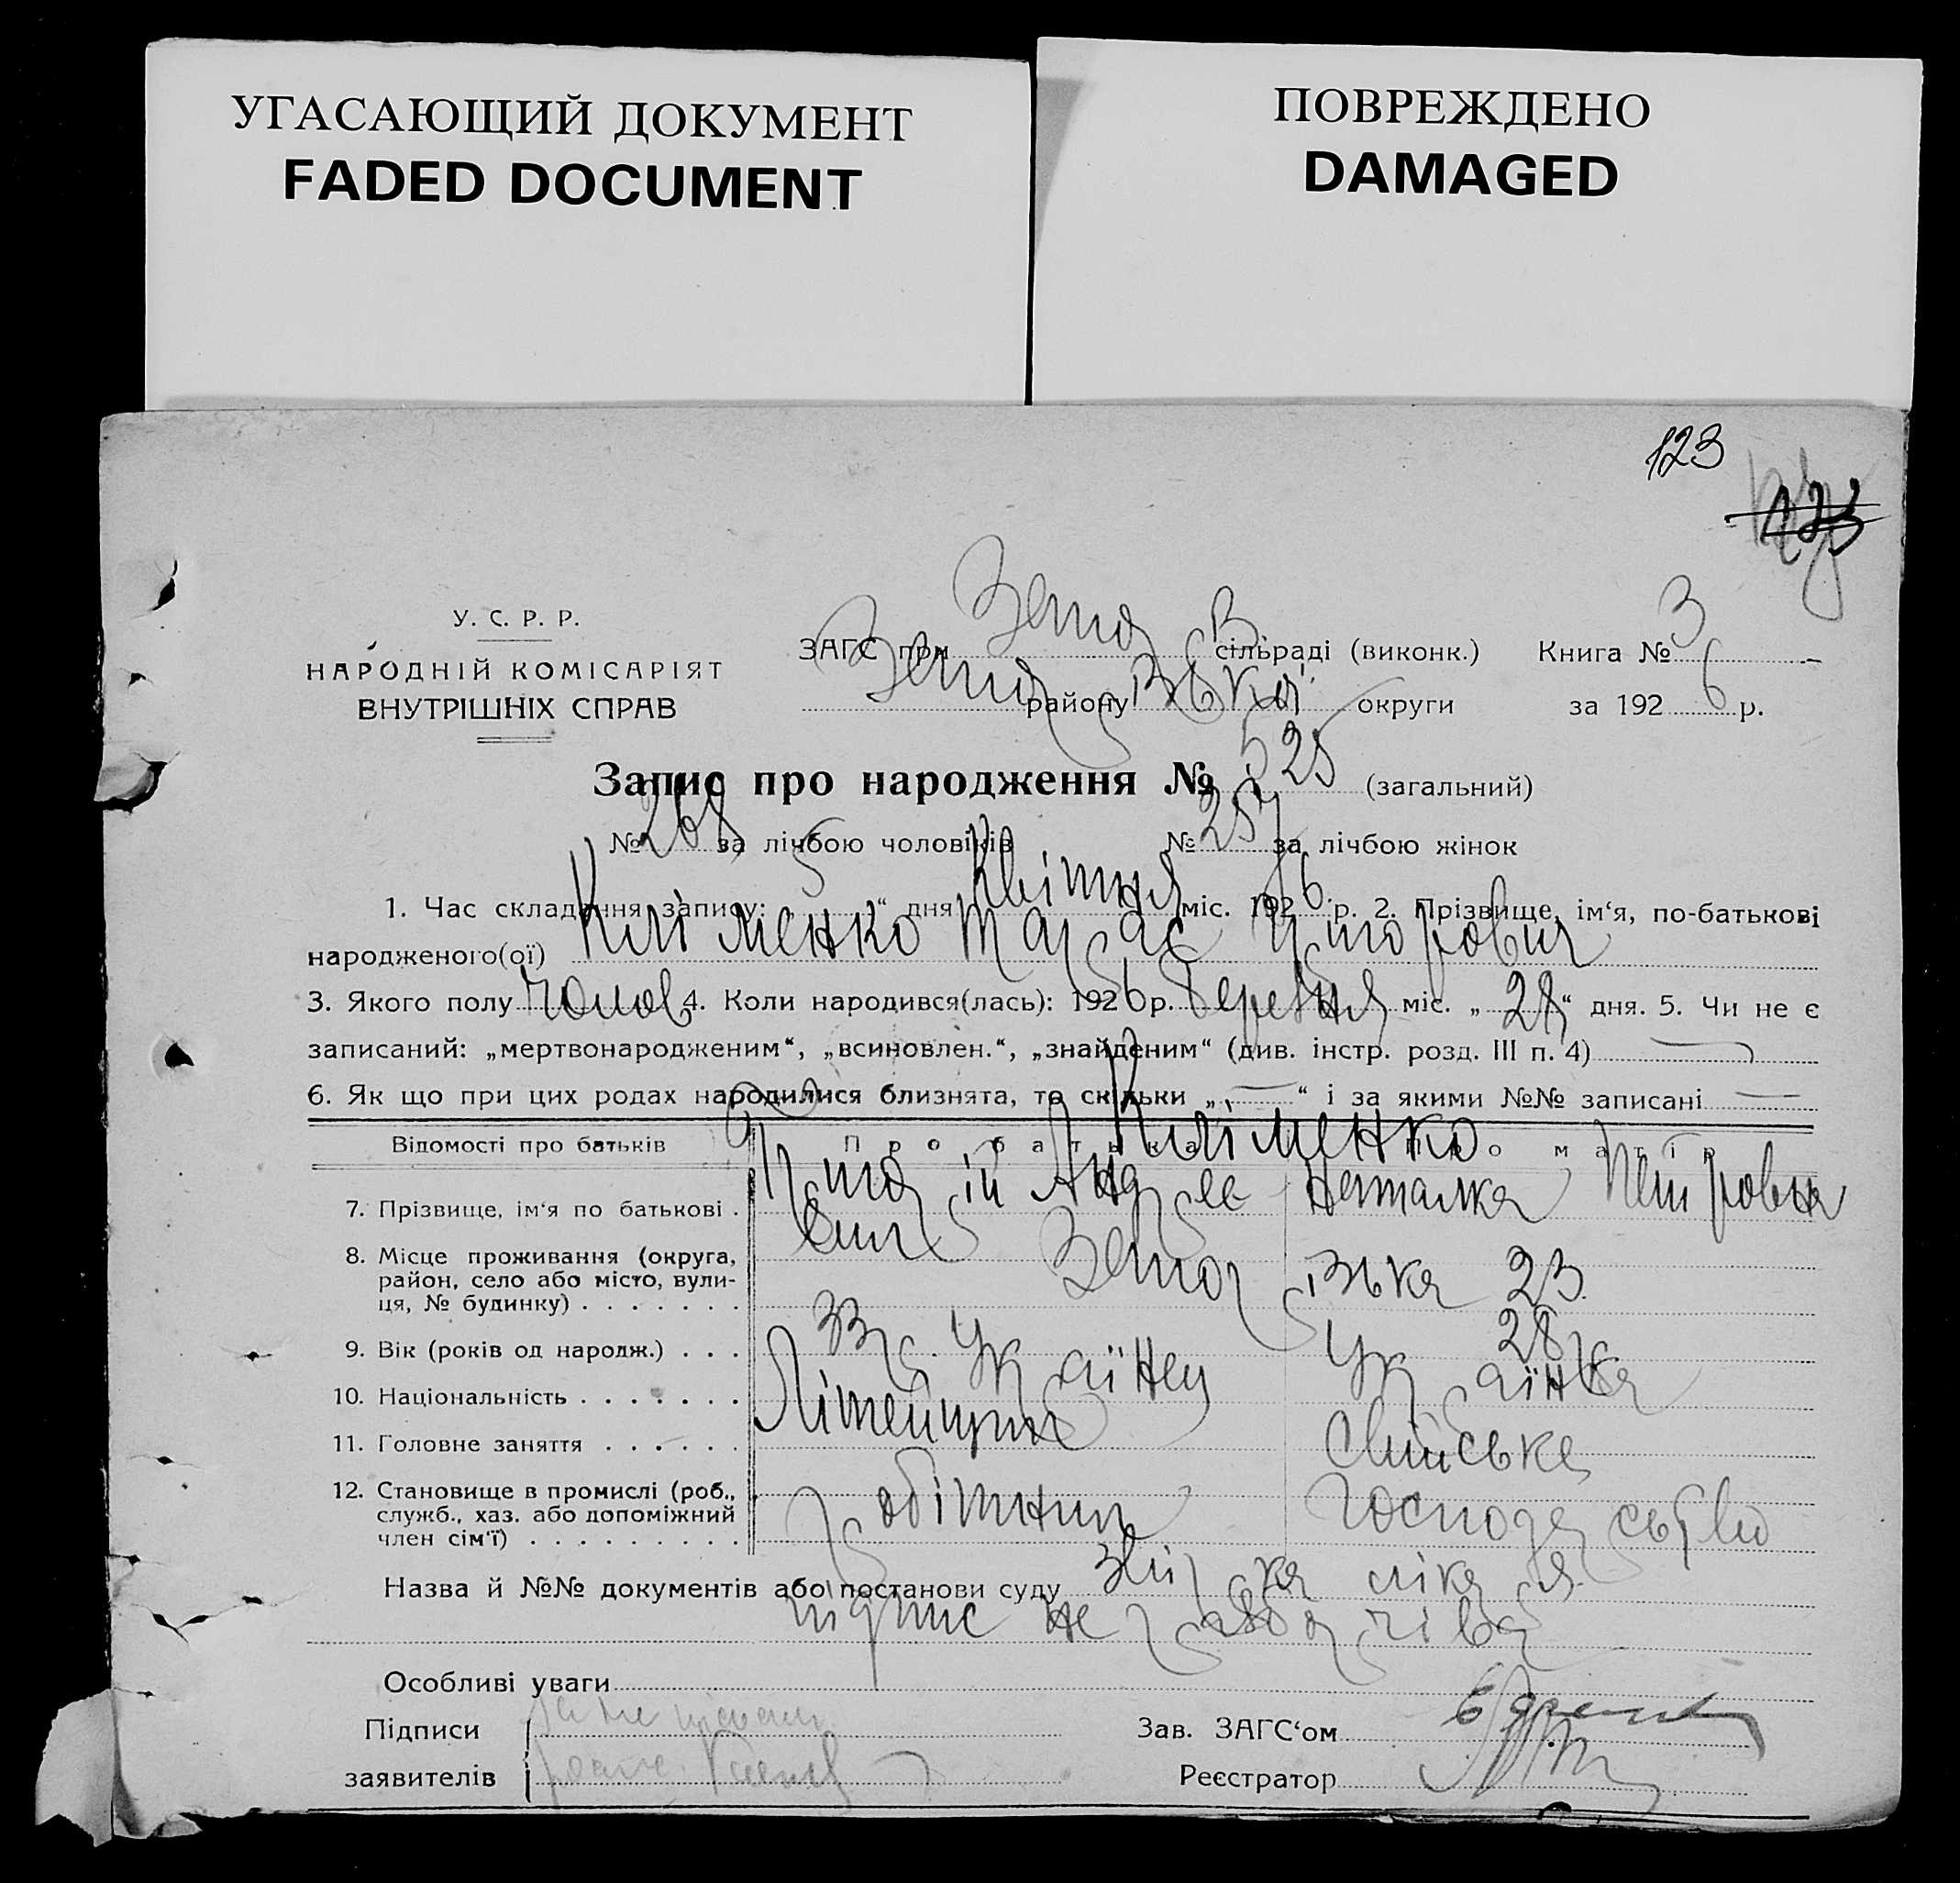 УГАСАЮЩИЙ ДОКУМЕНТ
FADED DOCUMENT
ПОВРЕЖДЕНО
DAMAGED
123
123
У. С. Р. Р.
НАРОДНІЙ КОМІСАРІЯТ
ВНУТРІШНІХ СПРАВ
ЗАГС при сільраді (виконк.) Книга № 3
району округи за 1926 р.
Запис про народження № 525 (загальний)
№ 268 за лічбою чоловіків № 257 за лічбою жінок
1. Час складання запису: „5“ дня Квітня міс. 1926 р. 2. Прізвище, ім‘я, по-батькові
народженого(ої) Кліменко Тарас
3. Якого полу чолов 4. Коли народився(лась): 1926 р. березня міс. „28“ дня. 5. Чи не є
записаний: „мертвонародженим“, „всиновлен.“, „знайденим“ (див. інстр. розд. III п. 4) —
6. Як що при цих родах народилися близнята, то скільки „—“ і за якими №№ записані —
Відомості про батьків Про батька Про матір
Кліменко
7. Прізвище, ім‘я по батькові . Андрее Наталка Петровна
вич
8. Місце проживання (округа,
район, село або місто, вули-
ця, № будинку) . . . . . . . 23
9. Вік (років од народж.) . . . 33 28
10. Національність . . . . . . . Українец Українка
11. Головне заняття . . . . . . Літейщик Свійське
12. Становище в промислі (роб.,
служб., хаз. або допоміжний
член сім‘ї) . . . . . . . . . робітник господарство
Назва й №№ документів або постанови суду лікаря
підпис не
Особливі уваги
Підписи
заявителів
Зав. ЗАГС‘ом
Реєстратор